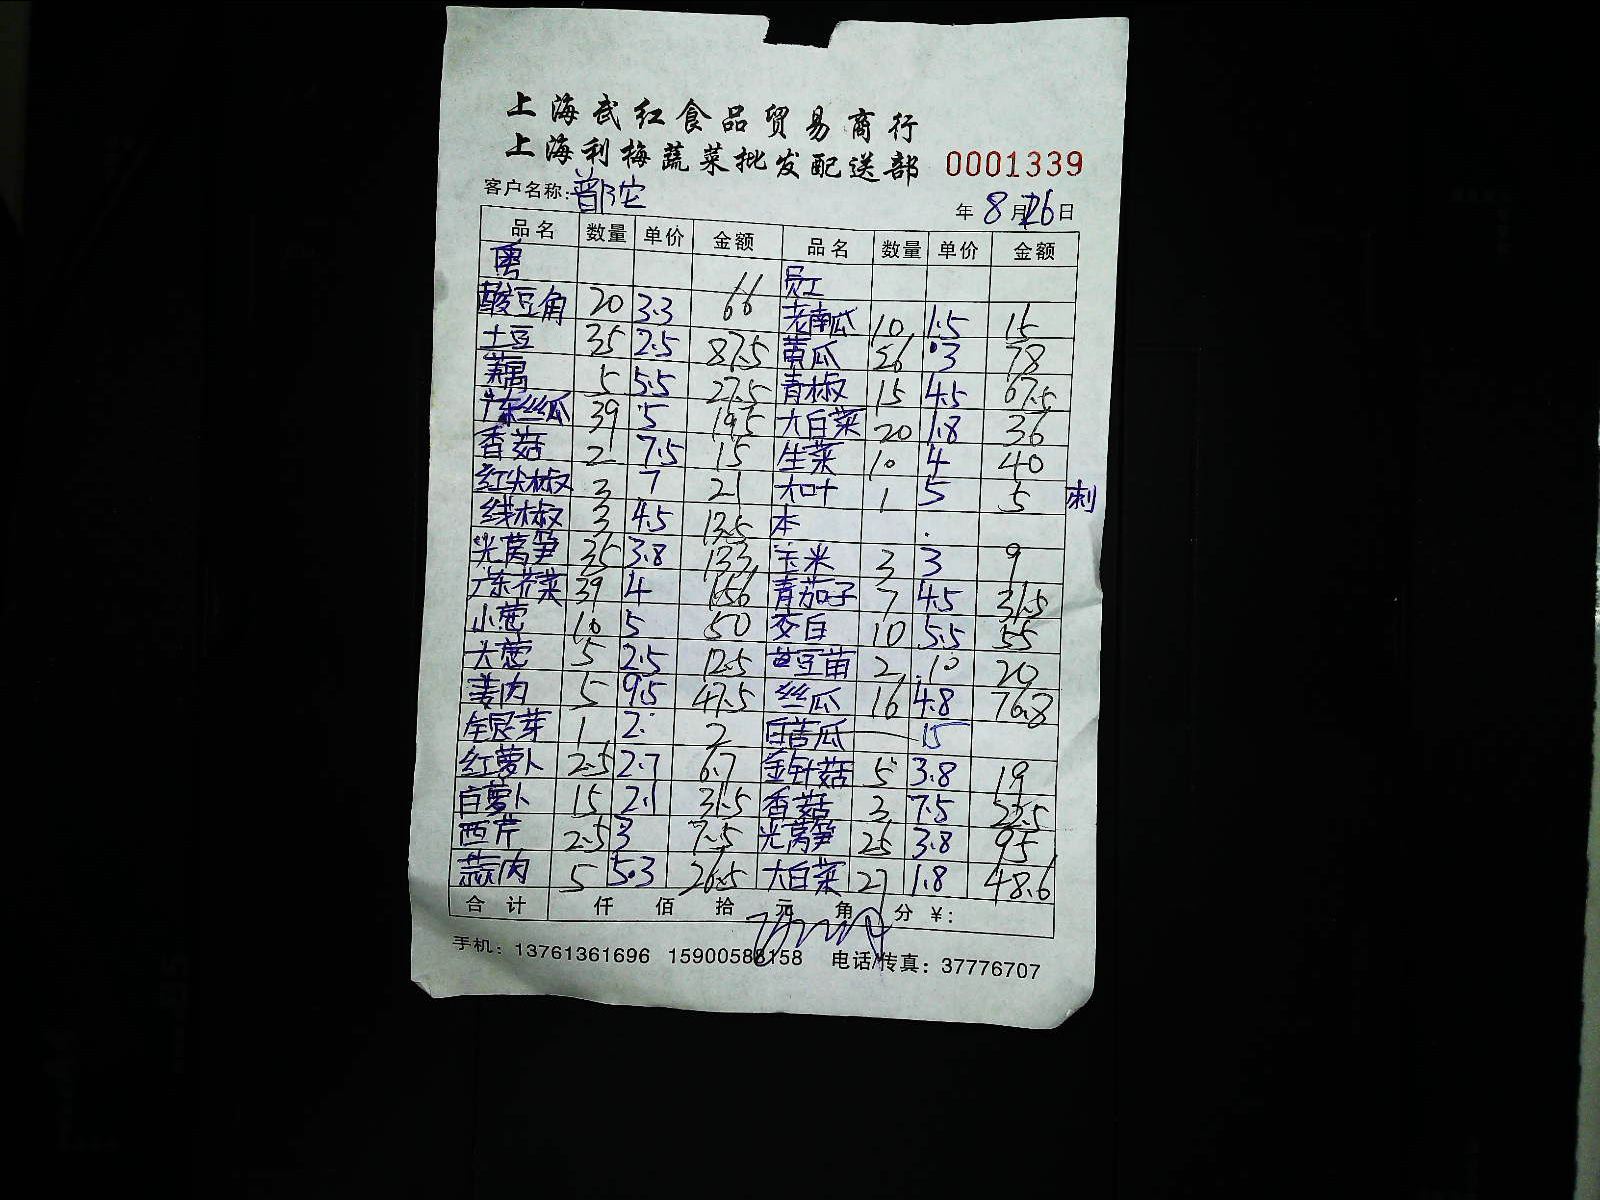 上海武红食品贸易商行
上海利梅蔬菜批发配送部 0001339
客户名称:普陀 年 8 月 26 日
品名 数量 单价 金额 品名 数量 单价 金额
粤 员工
酸豆角 20 3.3 66 老南瓜 10 1.5 15
土豆 35 2.5 87.5 黄瓜 26 3 78
藕 5 5.5 27.5 青椒 15 4.5 67.5
广东丝瓜 39 5 195 大白菜 20 1.8 36
香菇 2 7.5 15 生菜 10 4 40
红尖椒 3 7 21 木叶 1 5 5 刺
线椒 3 4.5 13.5 本
光莴笋 35 3.8 133 玉米 3 3 9
广东芥菜 39 4 156 青茄子 7 4.5 31.5
小葱 10 5 50 茭白 10 5.5 55
大葱 5 2.5 12.5 豆苗 2 10 20
姜肉 5 9.5 47.5 丝瓜 16 4.8 76.8
银芽 1 2 2 白苦瓜 — 15
红萝卜 2.5 2.7 6.7 金针菇 5 3.8 19
白萝卜 15 2.1 31.5 香菇 3 7.5 22.5
西芹 2.5 3 7.5 光莴笋 25 3.8 95
蒜肉 5 5.3 26.5 大白菜 27 1.8 48.6
合计 仟 佰 拾 元 角 分 ¥:
手机: 13761361696 15900588158 电话/传真: 37776707